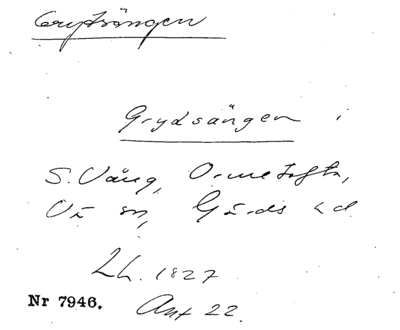 Grytsängen
Grydsängen i
S. Vång, Ormetofta,
Vä sn, Gärds hd
Lh. 1827
Nr 7946. Akt 22.